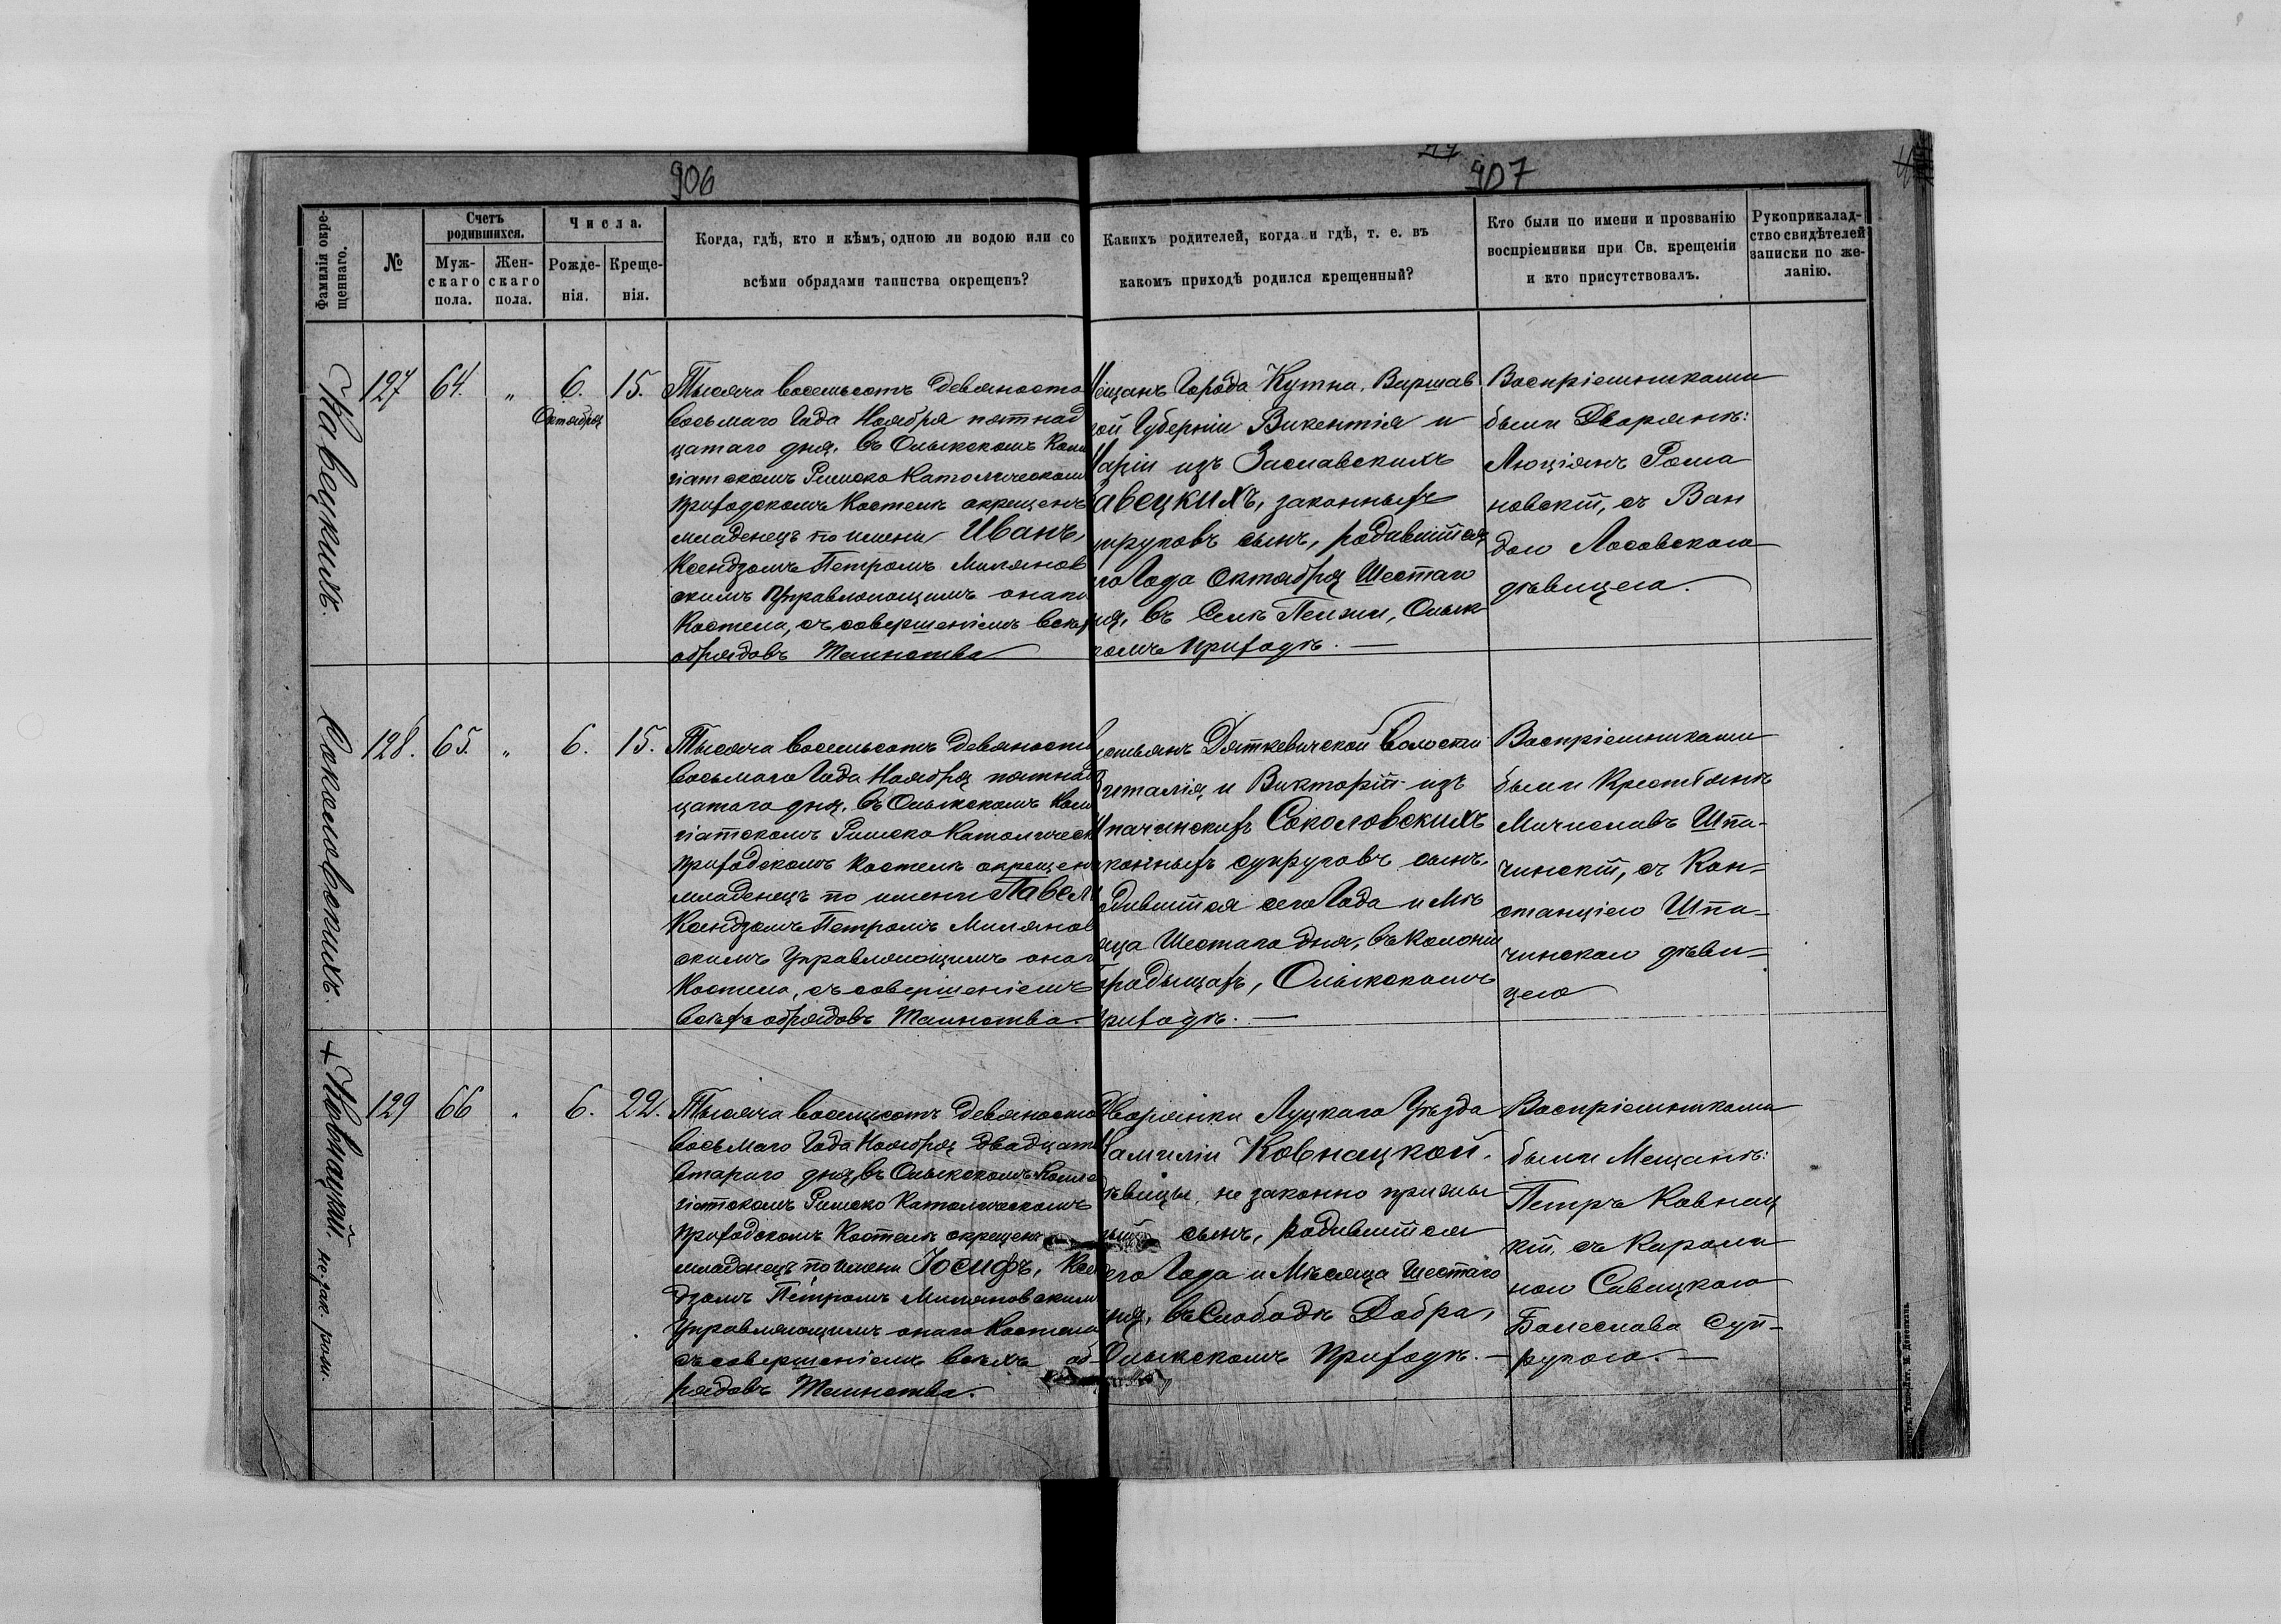 906
907
Фамилія окре-
щеннаго.
№
Счетъ
родившихся.
Муж-
скаго
пола.
Жен-
скаго
пола.
Числа.
Рожде-
нія.
Креще-
нія.
Когда, гдѣ, кто и кѣмъ, одною ли водою или со
всѣми обрядами таинства окрещенъ?
Какихъ родителей, когда и гдѣ, т. е. въ
какомъ приходѣ родился крещенный?
Кто были по имени и прозванію
воспріемники при Св. крещеніи
и кто присутствовалъ.
Рукоприклад-
ство свидѣтелей
записки по же-
ланію.
127
64.
"
6.
Октября
15.
Тысяча восемьсотъ девяносто
восьмаго Года Ноября пятнад
цатаго дня, въ Олыкскомъ
гіатскомъ Римско Католическомъ
приходскомъ Костелѣ окрещенъ
младенецъ по имени Иванъ,
Ксендзомъ Петромъ Милянов
скимъ Управляющимъ онаго
Костела, съ совершеніемъ всѣхъ
обрядовъ Таинства
Мещанъ Города Кутна, Варшав
кой Губерніи Викентія и
Маріи изъ Заславскихъ
авецкихъ, законныхъ
упруговъ сынъ, родившійся
го Года Октября Шестаго
ня, въ Селѣ Пелжи, Олык
комъ Приходѣ. —
Воспріемниками
были Дворяне:
Люціянъ Рома
новскій, съ Ван
дою Лосовскою
дѣвицею.
Соколовскихъ.
128.
65.
"
6.
15.
Тысяча восемьсотъ девяносто
восьмаго Года Ноября пятнад
цатаго дня, въ Олыкскомъ
гіатскомъ Римско Католическ
приходскомъ Костелѣ окрещенъ
младенецъ по имени Павелъ
Ксендзомъ Петромъ Милянов
скимъ Управляющимъ онаго
Костела, съ совершеніемъ
всѣхъ обрядовъ Таинства.
естьянъ Дяткевичской Волости
Виталія и Викторіи изъ
Шпачинскихъ Соколовскихъ
конныхъ супруговъ сынъ,
одившійся сего Года и Мѣ
яца Шестаго дня, въ Колоніи
Градыщахъ, Олыкскомъ
Приходѣ. —
Воспріемниками
были Крестьяне
Мичиславъ Шпа-
чинскій, съ Кон=
станціею Шпа-
чинскою дѣви=
цею
+ Ковнацкій, не зак. рож.
129
66
"
6.
22.
Тысяча восемьсотъ девяносто
восьмаго Года Ноября двадцать
втораго дня, въ Олыкскомъ Колле
гіатскомъ Римско Католическомъ
приходскомъ Костелѣ окрещенъ
младенецъ по имени Іосифъ, Ксен
дзомъ Петромъ Миляновскимъ
Управляющимъ онаго Костела
съ совершеніемъ всѣхъ об-
рядовъ Таинства.
Дворянки Луцкаго Уѣзда
Камиліи Ковнацкой,
дѣвицы, не законно прижи
сынъ, родившійся
сего Года и Мѣсяца Шестаго
ня, въ Слободѣ Добра,
Олыкскомъ Приходѣ. —
Воспріемниками
были Мещане:
Петръ Ковнац
кій, съ Кароли
ною Савицкою
Болеслава Суп-
ругою. —